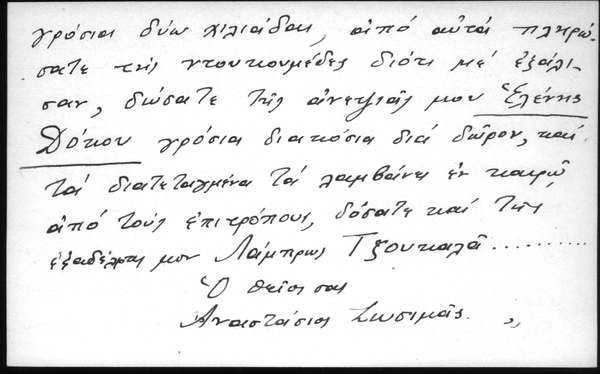 γρόσια δύω χιλιάδας, ἀπό αὐτά πληρώ-
σατε τής ντουκουμέδες διότι μέ ἐξάλι-
σαν, δώσατε τῆς ἀνεψιᾶς μου Ἑλένης
Δόκου γρόσια διακόσια διά δῶρον, καί
τά διατεταγμένα τά λαμβάνει ἐν καιρῷ
ἀπό τούς ἐπιτρόπους, δόσατε καί τῆς
ἐξαδέλφης μου Λάμπρως Τζουκαλᾶ ..........
Ὁ θεῖος σας
Ἀναστάσιος Ζωσιμᾶς. „